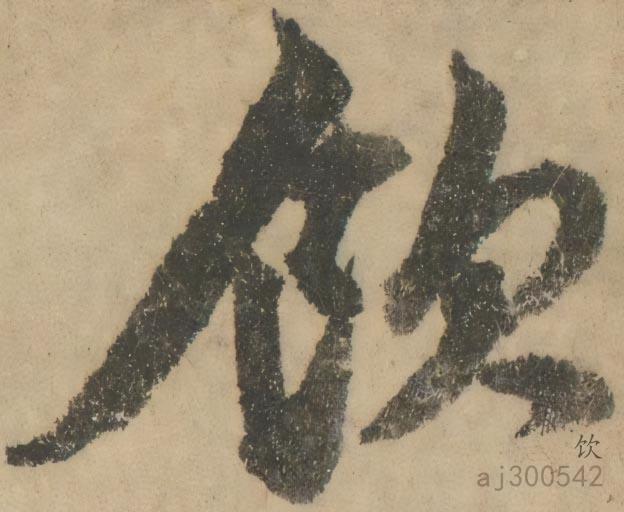 飲
饮
aj300542